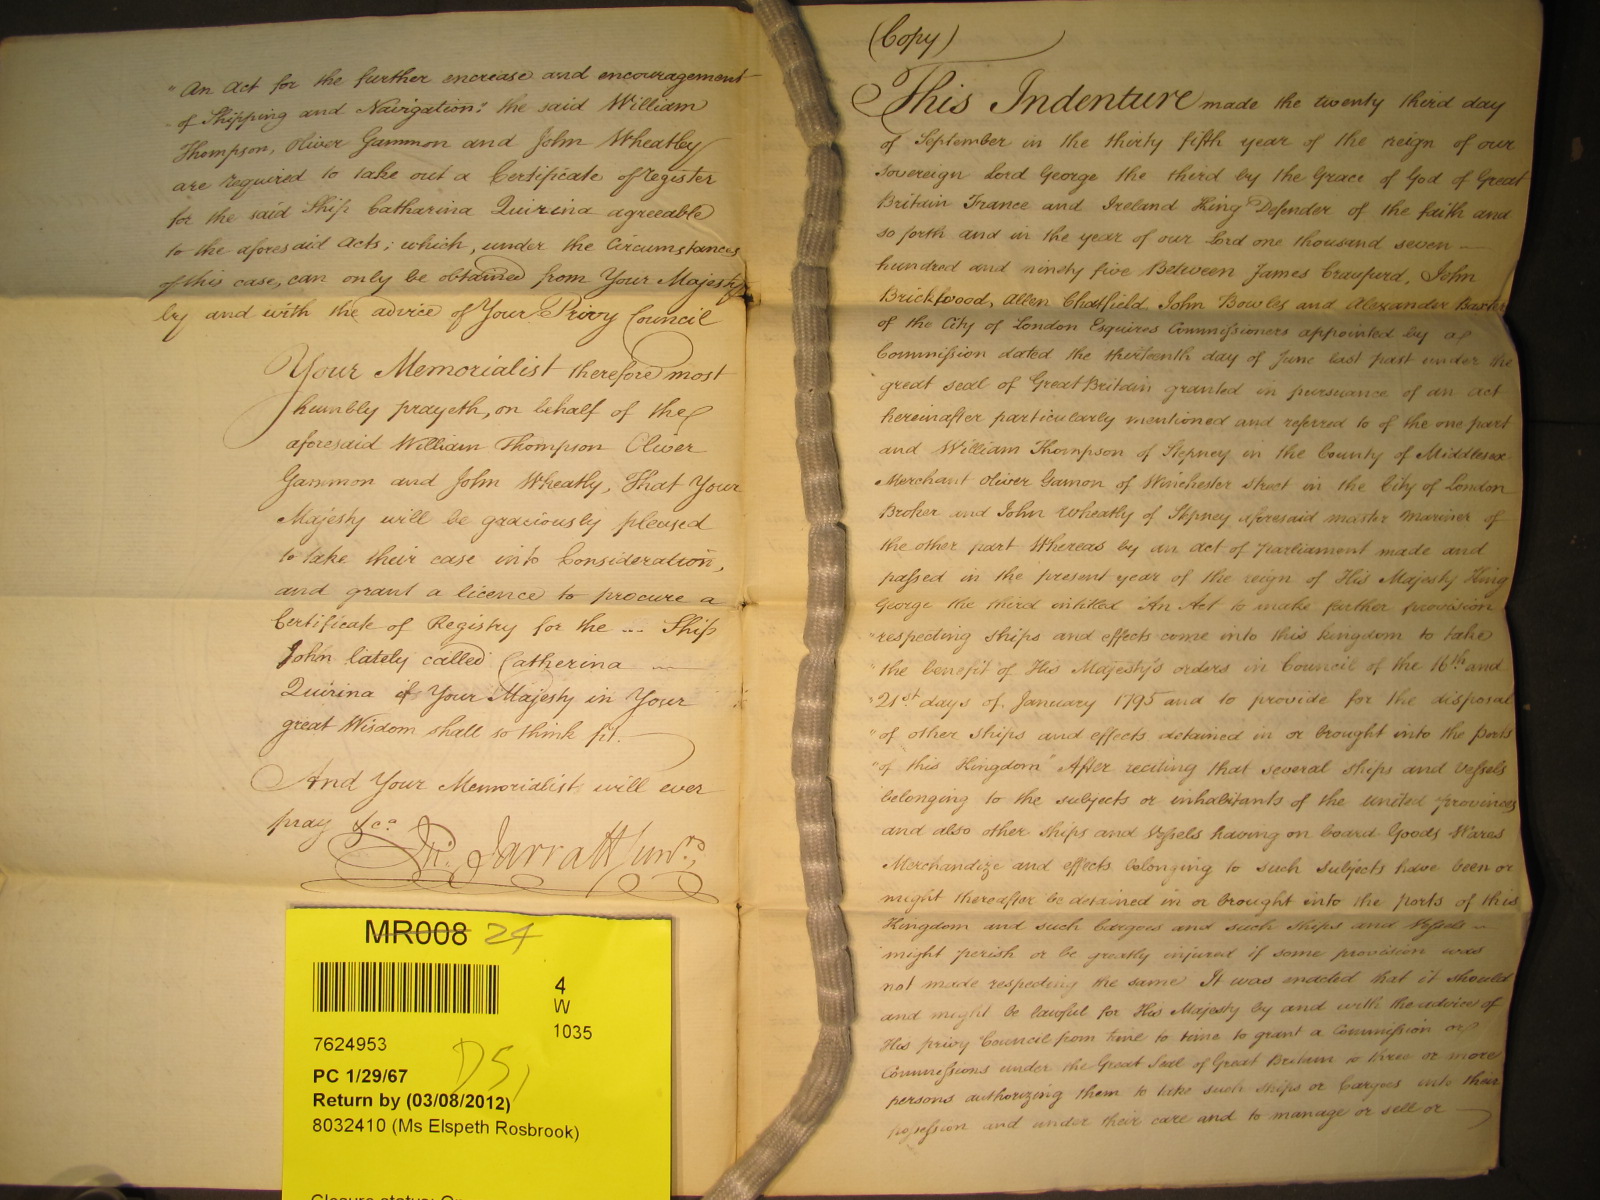 "An Act for the further encrease and encouragement
of Shipping and Navigation: the said William
Thompson, Oliver Gammon and John Wheatley
are required to take out a Certificate of register
for the said Ship Catharina Quirina agreeable
to the aforesaid Acts; which, under the Circumstances
of this case, can only be obtained from Your Majesty
by and with the advice of Your Privy Council
Your Memorialist therefore most
humbly prayeth, on behalf of the
aforesaid William Thompson Oliver
Gammon and John Wheatly, That Your
Majesty will be graciously pleased
to take their case into Consideration,
and grant a licence to procure a
Certificate of Registry for the ... Ship
John lately called Catherina
Quirina if Your Majesty in Your
great Wisdom shall so think fit.
And Your Memorialist will ever
pray &ca
Jarratt Junr.
MR008 24
4
W
1035
7624953
PC 1/29/67
Return by (03/08/2012)
8032410 (Ms Elspeth Rosbrook)
(Copy)
This Indenture made the twenty third day
of September in the thirty fifth year of the reign of our
Sovereign Lord George the third by the Grace of God of Great
Britain France and Ireland King Defender of the faith and
so forth and in the year of our Lord one thousand seven
hundred and ninety five Between James Craufurd, John
Brickwood, Allen Chatfield, John Bowles and Alexander Baxter
of the City of London Esquires Commissioners appointed by a
Commission dated the thirteenth day of June last past under the
great seal of Great Britain granted in pursuance of an act
hereinafter particularly mentioned and referred to of the one part
and William Thompson of Stepney in the County of Middlesex
Merchant Oliver Gamon of Winchester Street in the City of London
Broker and John Wheatly of Stepney aforesaid master Mariner of
the other part Whereas by an act of Parliament made and
passed in the present year of the reign of His Majesty King
George the third intitled "An Act to make further provision
"respecting ships and effects come into this kingdom to take
"the benefit of His Majesty's orders in Council of the 16th and
"21st days of January 1795 and to provide for the disposal
"of other Ships and effects detained in or brought into the ports
"of this Kingdom" After reciting that several ships and Vessels
belonging to the subjects or inhabitants of the united provinces
and also other ships and Vessels having on board Goods Wares
Merchandize and effects belonging to such subjects have been or
might thereafter be detained in or brought into the ports of this
Kingdom and such Cargoes and such ships and Vessels
might perish or be greatly injured if some provision was
not made respecting the same It was enacted that it should
and might be lawful for His Majesty by and with the advice of
His privy Council from time to time to grant a Commission or
Commissions under the Great Seal of Great Britain to three or more
persons authorizing them to take such ships or Cargoes into their
possession and under their care and to manage or sell or